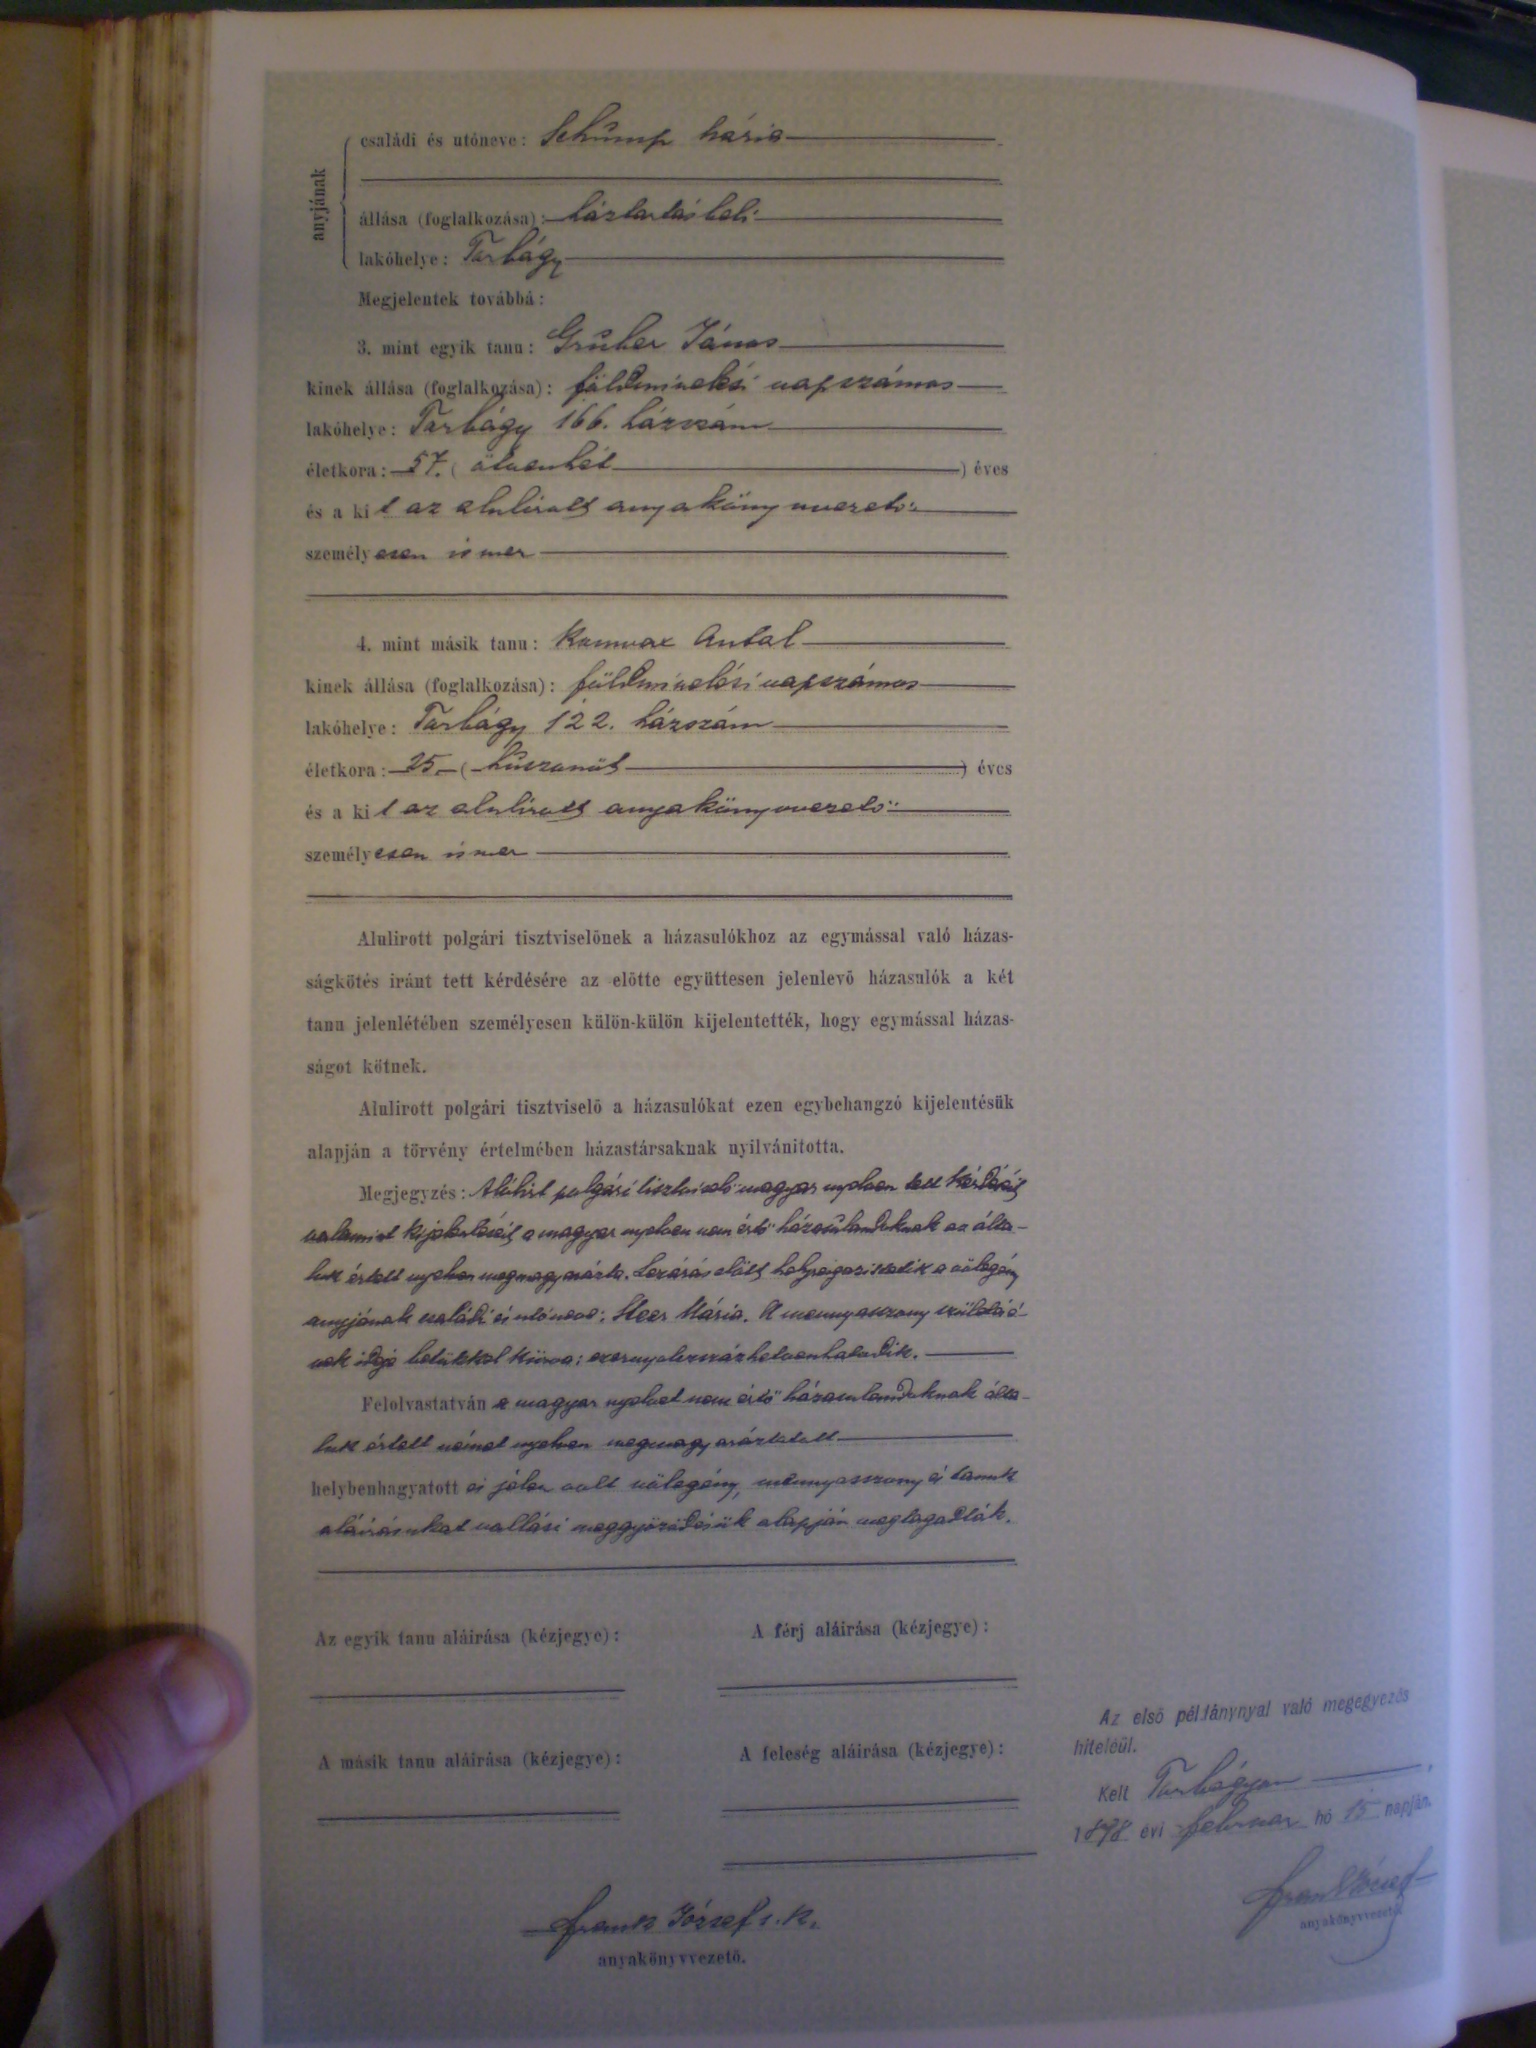 anyjának
családi és utóneve: Schump Mária
állása (foglalkozása): háztartásbeli
lakóhelye: Torbágy
Megjelentek továbbá:
3. mint egyik tanu: Gruber János
kinek állása (foglalkozása): földmivelési napszámos
lakóhelye: Torbágy 166. házszám
életkora: 57. (ötvenhét) éves
és a kit az alulirott anyakönyvvezető
személyesen ismer
4. mint másik tanu: Antal
kinek állása (foglalkozása): földmivelési napszámos
lakóhelye: Torbágy 122. házszám
életkora: 25. (huszonöt) éves
és a kit az alulirott anyakönyvvezető
személyesen ismer
Alulirott polgári tisztviselőnek a házasulókhoz az egymással való házas-
ságkötés iránt tett kérdésére az előtte együttesen jelenlevő házasulók a két
tanu jelenlétében személyesen külön-külön kijelentették, hogy egymással házas-
ságot kötnek.
Alulirott polgári tisztviselő a házasulókat ezen egybehangzó kijelentésük
alapján a törvény értelmében házastársaknak nyilvánitotta.
Megjegyzés: Alulirt polgári tisztviselő magyar nyelven tett kérdését
valamint kijelentését a magyar nyelven nem értő házasulandóknak az álta-
luk értett nyelven megmagyarázta. Lezárás előtt helyreigazittatik a vőlegény
anyjának családi és utóneve: Steer Mária. A mennyasszony születésé-
nek ideje betükkel kiirva: ezernyolczszázhetvenhatodik.
Felolvastatván a magyar nyelvet nem értő házasulandóknak álta-
luk értett német nyelven megmagyaráztatott
helybenhagyatott és jelen volt vőlegény, mennyasszony és tanuk
aláirásukat vallási meggyőződésük alapján megtagadták.
Az egyik tanu aláirása (kézjegye):
A férj aláirása (kézjegye):
A másik tanu aláirása (kézjegye):
A feleség aláirása (kézjegye):
Frank József s. k.
anyakönyvvezető.
Az első példánynyal való megegyezés
hiteléül.
Kelt Torbágyon,
1898 évi február hó 15 napján.
Frank József
anyakönyvvezető